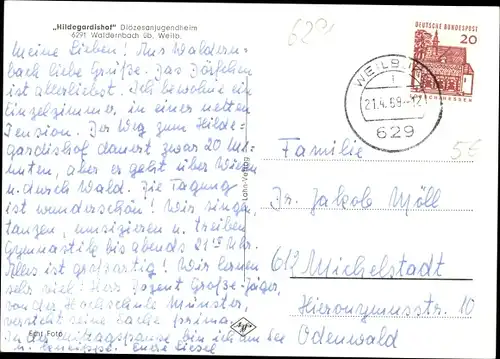 „Hildegardishof" Diözesanjugendheim
6291 Waldernbach üb. Weilb.
Meine Lieben! Aus Waldern-
bach liebe Grüße. Das Dörfchen
ist allerliebst. Ich bewohne ein
Einzelzimmer, in einer netten
Pension. Der Weg zum Hilde-
gardishof dauert zwar 20 Mi-
nuten, aber es geht über Wiesen
u. durch Wald. Die Tagung
ist wunderschön! Wir singen,
tanzen, musizieren u. treiben
Gymnastik bis abends 21 15 Uhr.
Alles ist großartig! Wir lernen
sehr viel! Herr Dozent Große-Jäger,
von der Hochschule Münster,
versteht seine Sache prima.
In der Mittagspause bin ich am
Eure Liesel
Echt Foto
Lahn-Verlag
Agfa
629
DEUTSCHE BUNDESPOST
20
LORSCH/HESSEN
WEILB
21.4.69-12
629
5€
Familie
Dr. Jakob Möll
612 Michelstadt
Hieronymusstr. 10
Odenwald